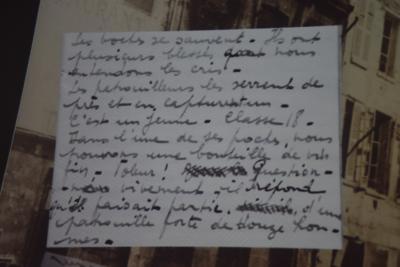 les bochs se sauvent - Ils ont
plusieurs blessés, nous
entendons les cris -
Les patrouilleurs les serrent de
près et en capturent un -
C'est un jeune - Classe 18 -
Dans l'une de ses poches, nous
trouvons une bouteille de
fin - voleur! Question-
né vivement, il répond
qu'il faisait partie d'une
patrouille forte de douze hom-
mes -